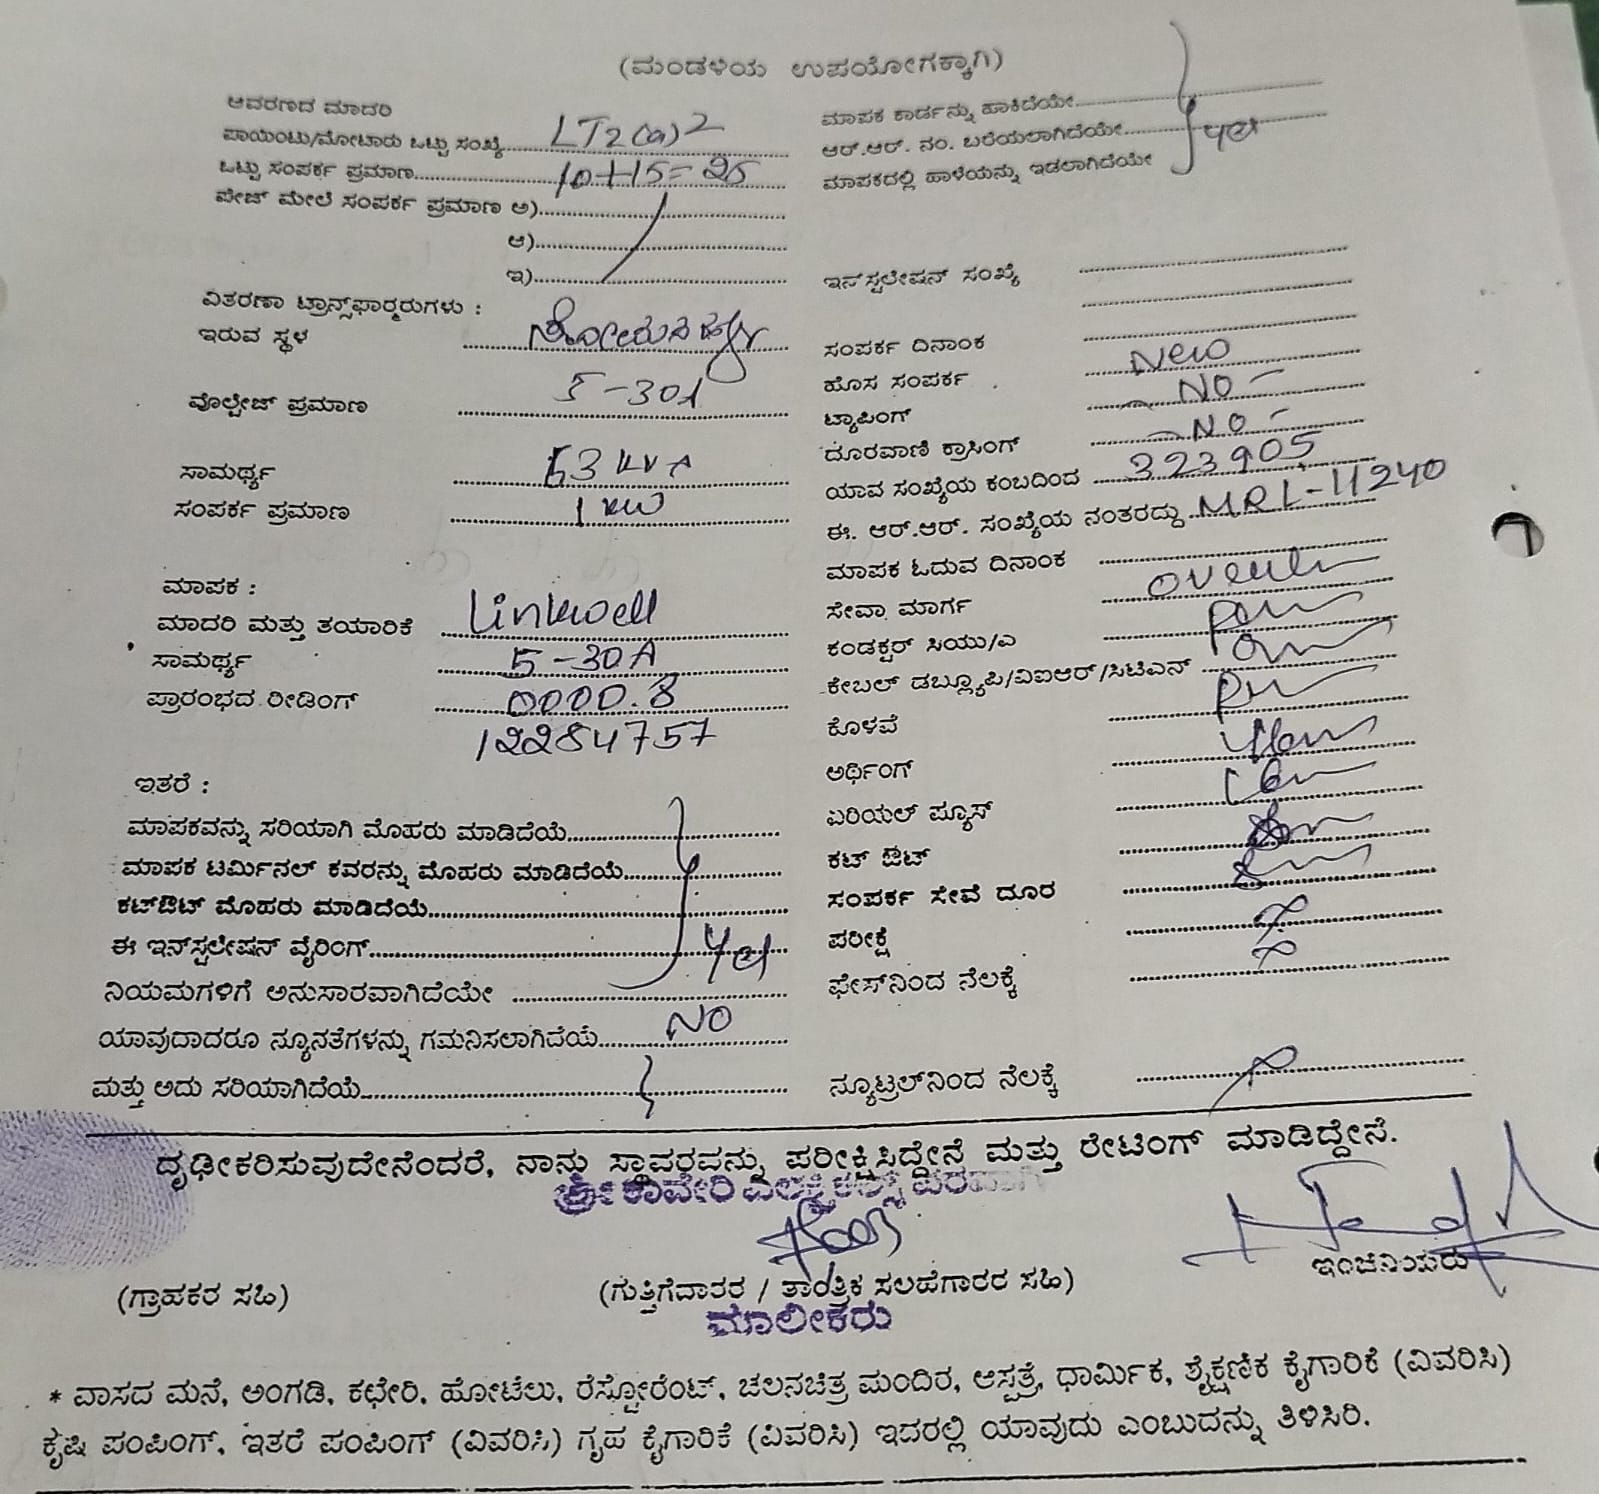 (ಮಂಡಳಿಯ ಉಪಯೋಗಕ್ಕಾಗಿ)
ಆವರಣದ ಮಾದರಿ
ಪಾಯಿಂಟು/ಮೋಟಾರು ಒಟ್ಟು ಸಂಖ್ಯೆ LT2(a)2
ಒಟ್ಟು ಸಂಪರ್ಕ ಪ್ರಮಾಣ 10+15=25
ಪೇಜ್ ಮೇಲೆ ಸಂಪರ್ಕ ಪ್ರಮಾಣ ಅ)
ಆ)
ಇ)
ವಿತರಣಾ ಟ್ರಾನ್ಸ್‌ಫಾರ್ಮರುಗಳು :
ಇರುವ ಸ್ಥಳ
ವೊಲ್ಟೇಜ್ ಪ್ರಮಾಣ 5-30A
ಸಾಮರ್ಥ್ಯ 63 KVA
ಸಂಪರ್ಕ ಪ್ರಮಾಣ 1 KW
ಮಾಪಕ :
ಮಾದರಿ ಮತ್ತು ತಯಾರಿಕೆ Linkwell
ಸಾಮರ್ಥ್ಯ 5-30A
ಪ್ರಾರಂಭದ ರೀಡಿಂಗ್ 0000.8
12284757
ಇತರೆ :
ಮಾಪಕವನ್ನು ಸರಿಯಾಗಿ ಮೊಹರು ಮಾಡಿದೆಯೆ
ಮಾಪಕ ಟರ್ಮಿನಲ್ ಕವರನ್ನು ಮೊಹರು ಮಾಡಿದೆಯೆ
ಕಟ್‌ಔಟ್ ಮೊಹರು ಮಾಡಿದೆಯೆ
ಈ ಇನ್‌ಸ್ಟಲೇಷನ್ ವೈರಿಂಗ್ yes
ನಿಯಮಗಳಿಗೆ ಅನುಸಾರವಾಗಿದೆಯೇ
ಯಾವುದಾದರೂ ನ್ಯೂನತೆಗಳನ್ನು ಗಮನಿಸಲಾಗಿದೆಯೆ NO
ಮತ್ತು ಅದು ಸರಿಯಾಗಿದೆಯೆ
ಮಾಪಕ ಕಾರ್ಡನ್ನು ಹಾಕಿದೆಯೇ
ಆರ್.ಆರ್. ನಂ. ಬರೆಯಲಾಗಿದೆಯೇ yes
ಮಾಪಕದಲ್ಲಿ ಹಾಳೆಯನ್ನು ಇಡಲಾಗಿದೆಯೇ
ಇನ್‌ಸ್ಟಲೇಷನ್ ಸಂಖ್ಯೆ
ಸಂಪರ್ಕ ದಿನಾಂಕ
ಹೊಸ ಸಂಪರ್ಕ New
ಟ್ಯಾಪಿಂಗ್ NO
ದೂರವಾಣಿ ಕ್ರಾಸಿಂಗ್ NO
ಯಾವ ಸಂಖ್ಯೆಯ ಕಂಬದಿಂದ 323905
ಈ. ಆರ್.ಆರ್. ಸಂಖ್ಯೆಯ ನಂತರದ್ದು MRL-11240
ಮಾಪಕ ಓದುವ ದಿನಾಂಕ
ಸೇವಾ ಮಾರ್ಗ
ಕಂಡಕ್ಟರ್ ಸಿಯು/ಎ
ಕೇಬಲ್ ಡಬ್ಲ್ಯೂಪಿ/ವಿಐಆರ್/ಸಿಟಿಎನ್
ಕೊಳವೆ
ಅರ್ಥಿಂಗ್
ಏರಿಯಲ್ ಫ್ಯೂಸ್
ಕಟ್ ಔಟ್
ಸಂಪರ್ಕ ಸೇವೆ ದೂರ
ಪರೀಕ್ಷೆ
ಫೇಸ್‌ನಿಂದ ನೆಲಕ್ಕೆ
ನ್ಯೂಟ್ರಲ್‌ನಿಂದ ನೆಲಕ್ಕೆ
ದೃಢೀಕರಿಸುವುದೇನೆಂದರೆ, ನಾನು ಸ್ಥಾವರವನ್ನು ಪರೀಕ್ಷಿಸಿದ್ದೇನೆ ಮತ್ತು ರೇಟಿಂಗ್ ಮಾಡಿದ್ದೇನೆ.
ಶ್ರೀ ಕಾವೇರಿ ಎಲೆಕ್ಟ್ರಿಕಲ್ಸ್ ಪರವಾಗಿ
(ಗ್ರಾಹಕರ ಸಹಿ)
(ಗುತ್ತಿಗೆದಾರರ / ತಾಂತ್ರಿಕ ಸಲಹೆಗಾರರ ಸಹಿ)
ಇಂಜಿನಿಯರು
ಮಾಲೀಕರು
* ವಾಸದ ಮನೆ, ಅಂಗಡಿ, ಕಛೇರಿ, ಹೋಟೆಲು, ರೆಸ್ಟೋರೆಂಟ್, ಚಲನಚಿತ್ರ ಮಂದಿರ, ಆಸ್ಪತ್ರೆ, ಧಾರ್ಮಿಕ, ಶೈಕ್ಷಣಿಕ ಕೈಗಾರಿಕೆ (ವಿವರಿಸಿ)
ಕೃಷಿ ಪಂಪಿಂಗ್, ಇತರೆ ಪಂಪಿಂಗ್ (ವಿವರಿಸಿ) ಗೃಹ ಕೈಗಾರಿಕೆ (ವಿವರಿಸಿ) ಇದರಲ್ಲಿ ಯಾವುದು ಎಂಬುದನ್ನು ತಿಳಿಸಿರಿ.